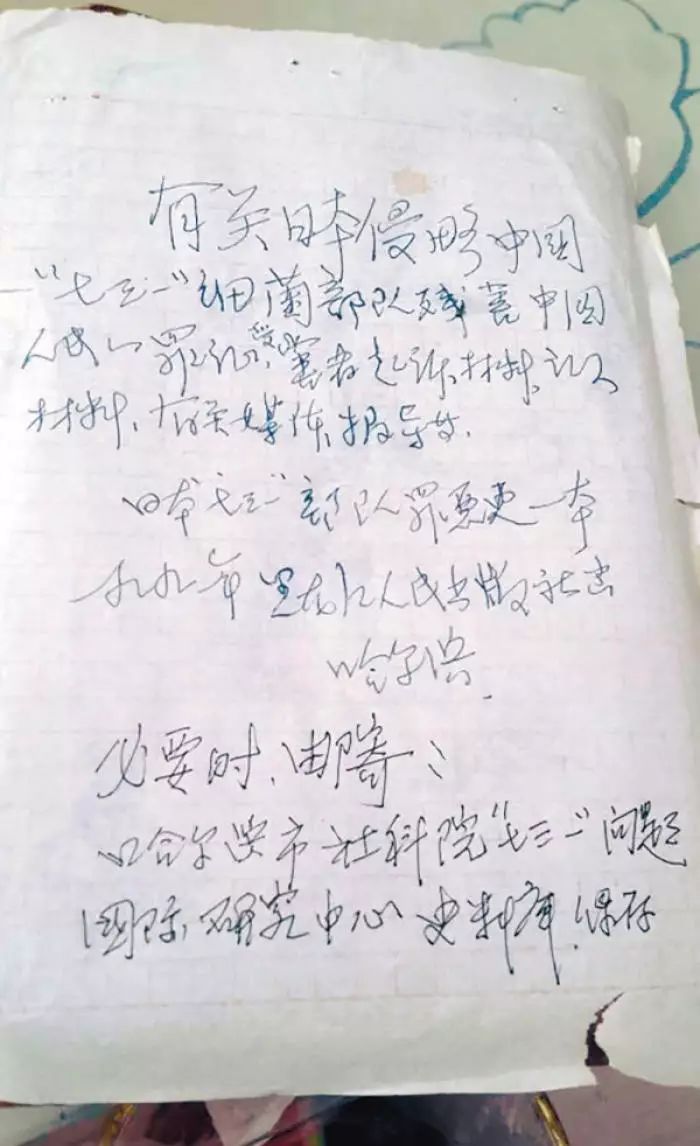 有关日本侵略中国
"七三一"细菌部队残害中国
人民的罪证,受害者起诉材料,证人
材料,有关媒体报导等.
日本七三一部队罪恶史一本
九九年 黑龙江人民出版社出
哈尔滨.
必要时,邮寄:
哈尔滨市社科院"七三一"问题
国际研究中心史料库.保存